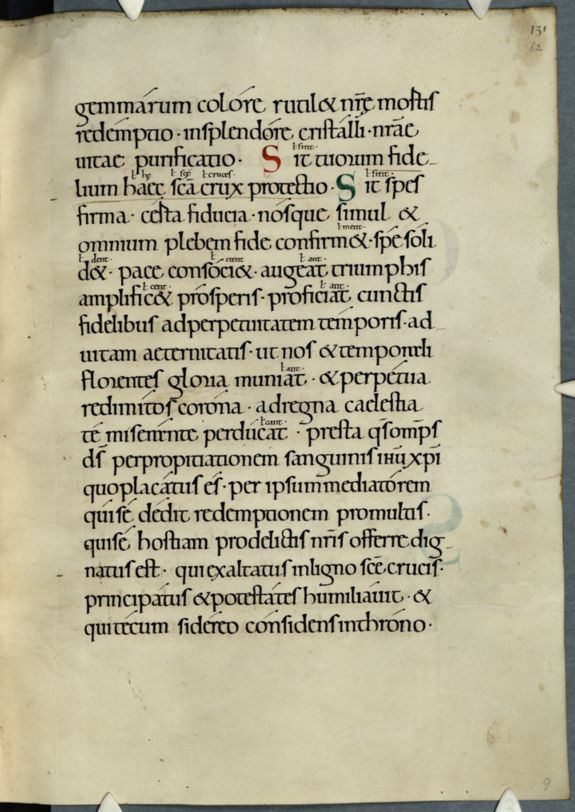 131
62
gemmarum colore rutil& nr̄ę mortis
redemptio · insplendore cristalli · nrāe
uitae purificatio · Sit tuorum fide-
ł sint·
lium haec sc̄a crux protectio · Sit spes
ł hę ł sc̄ę ł cruces· ł sint·
firma · certa fiducia · nosque simul &
omnium plebem fide confirm& · spe soli
ł ment·
d& · pace consoci& · augeat triumphis
ł dent· ł cient ł ant·
amplific& prosperis · proficiat cunctis
ł cent· ł ant·
fidelibus adperpetuitatem temporis · ad
uitam aeternitatis · ut nos & temporali
florentes gloria muniat · & perpetua
ł ant·
redimitos corona · adregna caelestia
te miserante perducat · presta qs̄ omps̄
ł cant·
ds̄ perpropitiationem sanguinis ihū xp̄i
quoplacatus es · per ipsummediatorem
quise dedit redemptionem promultis ·
quise hostiam prodelictis nr̄is offerre dig-
natus est · quiexaltatus inligno sc̄e crucis ·
principatus & potestates humiliauit · &
quitecum sidereo considensinthrono ·
9